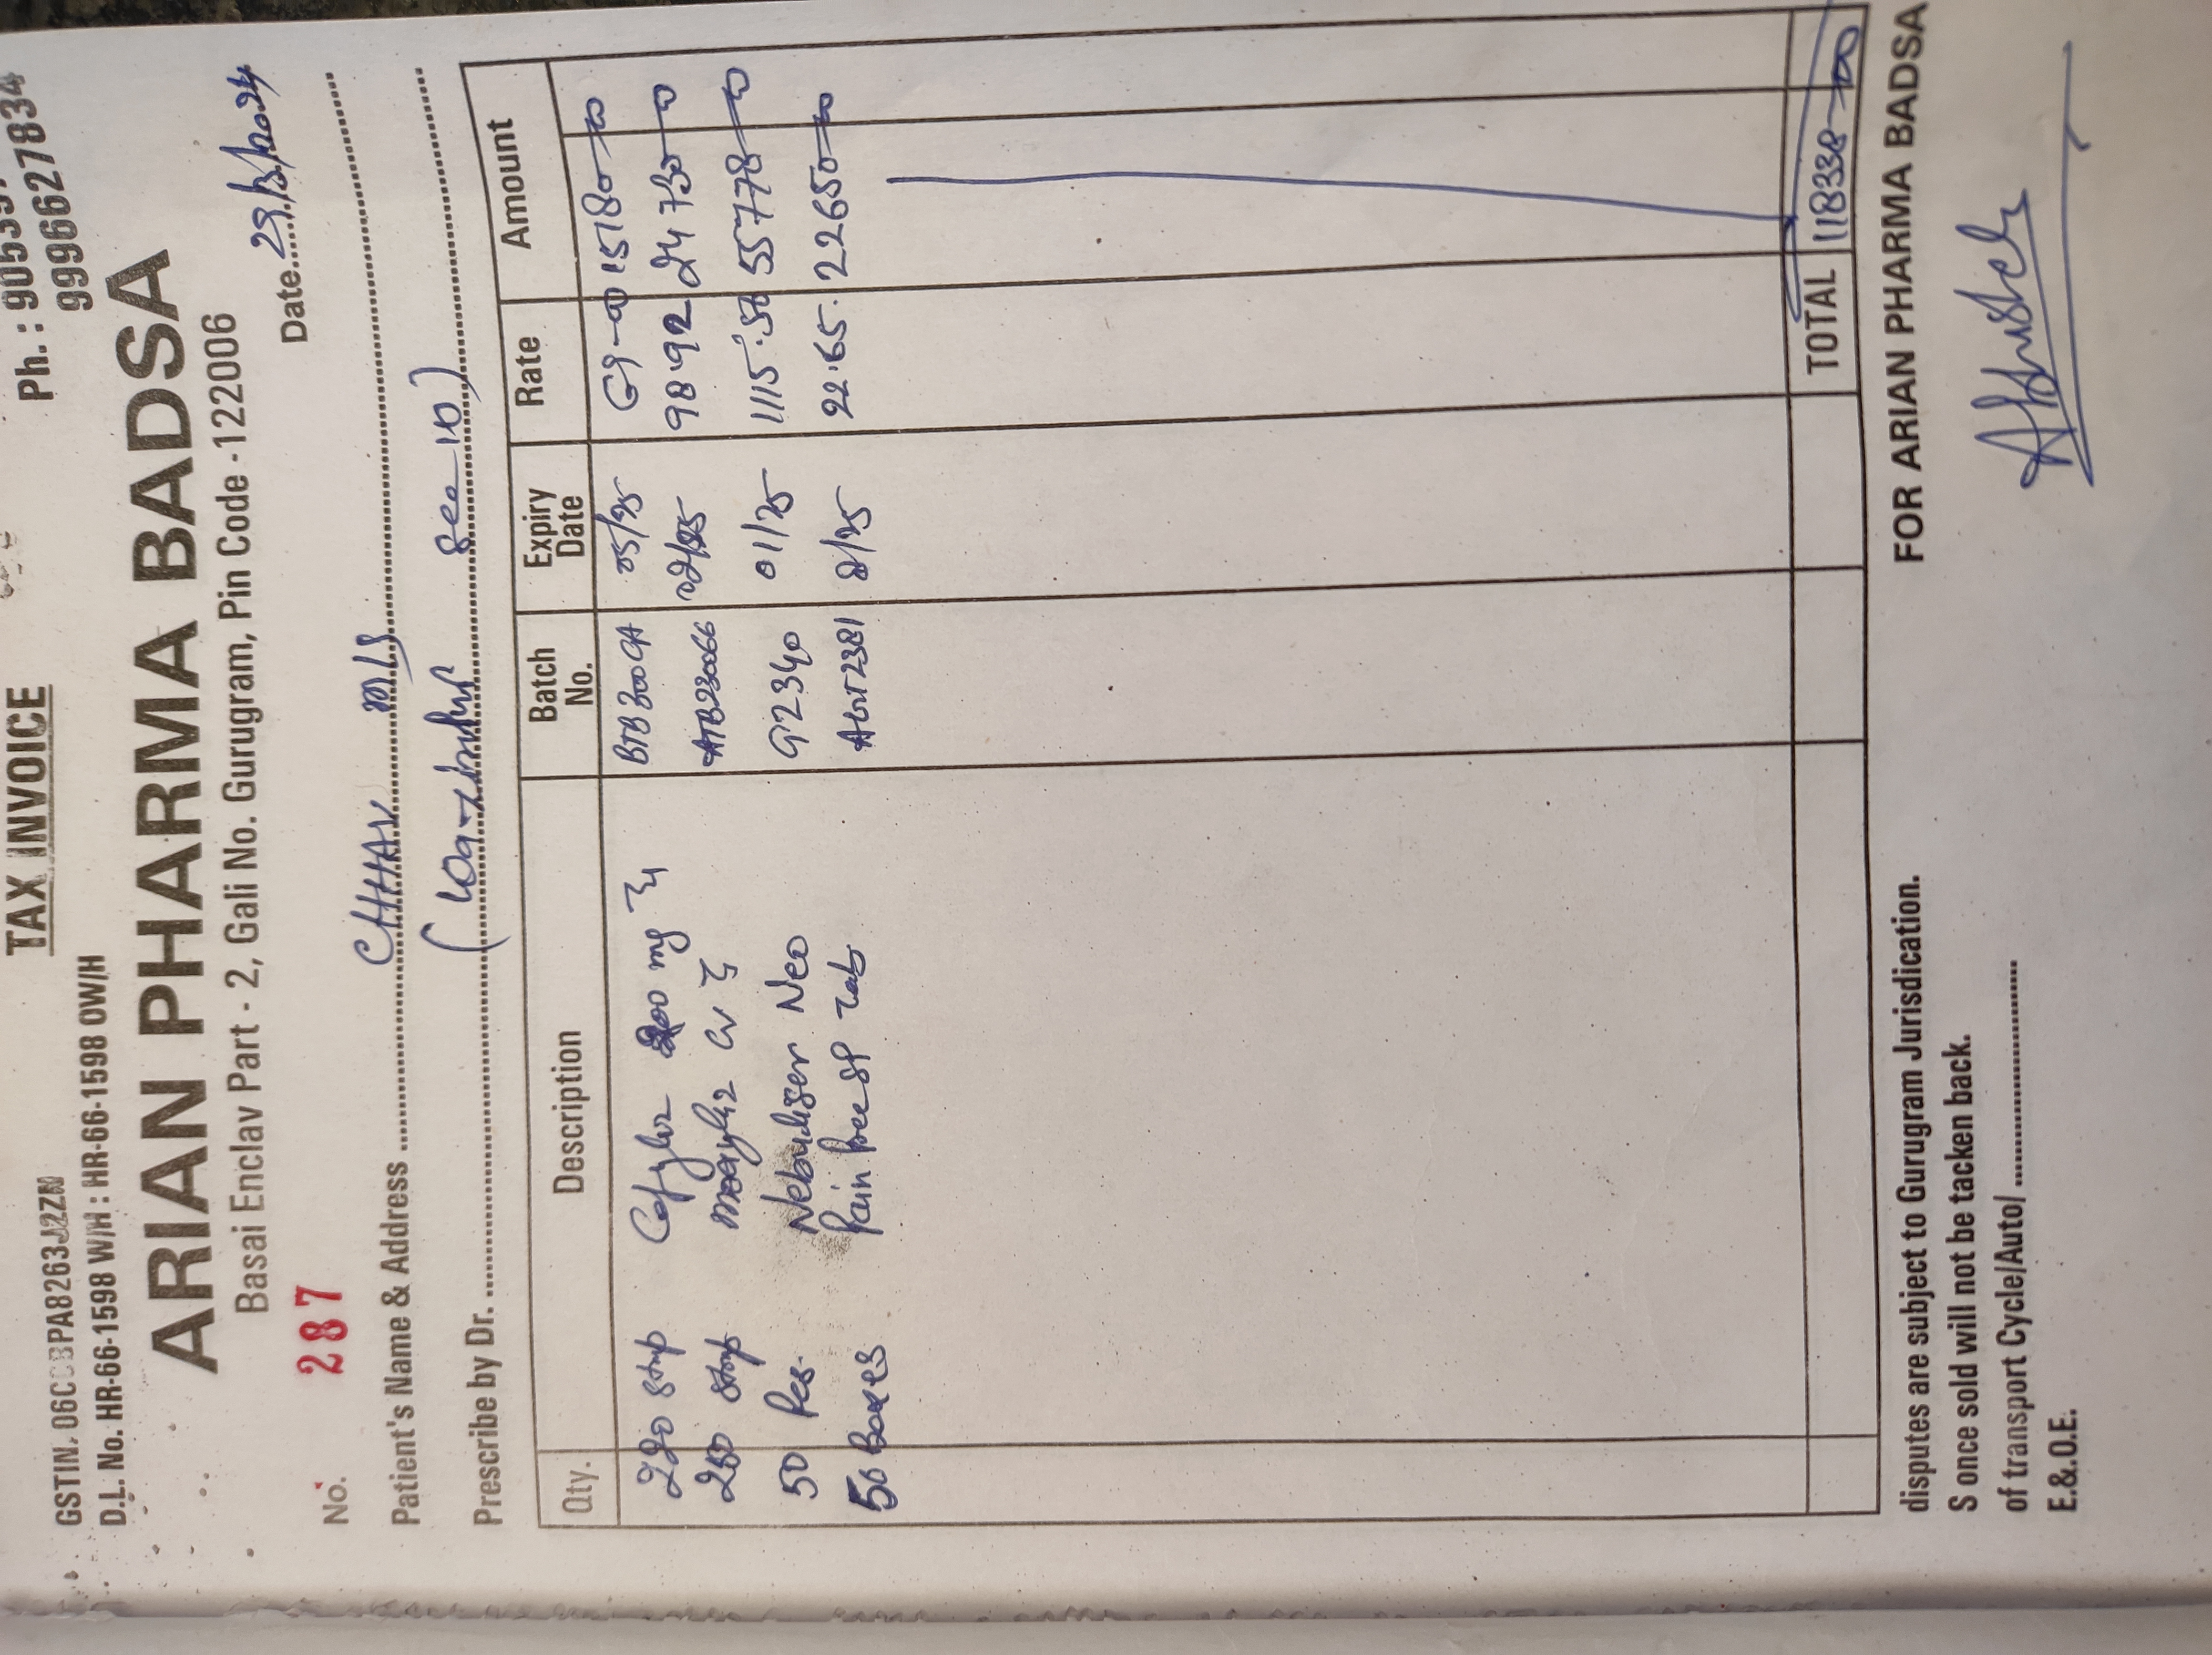 TAX INVOICE
Ph. : 90539
9996627834
D.L. No. HR-66-1598 W/H : HR-66-1598 OW/H
ARIAN PHARMA BADSA
Basai Enclav Part - 2, Gali No. Gurugram, Pin Code -122006
No. 287 Date
Patient's Name & Address CHHAV
Prescribe by Dr. Sec-10)
Qty. Description Batch No. Expiry Date Rate Amount
220 strip 200 mg 05/25 69-00 15180-00
250 strip CV ATB230066 02/25 98.92 24730-00
50 Pcs. Nebuliser Neo G2340 01/25 1115.56 55778-00
50 Boxes Pain free SP Tab 2/25 22.65 22650-00
TOTAL 118338-00
disputes are subject to Gurugram Jurisdication.
S once sold will not be tacken back.
of transport Cycle/Auto/
E.&.O.E.
FOR ARIAN PHARMA BADSA